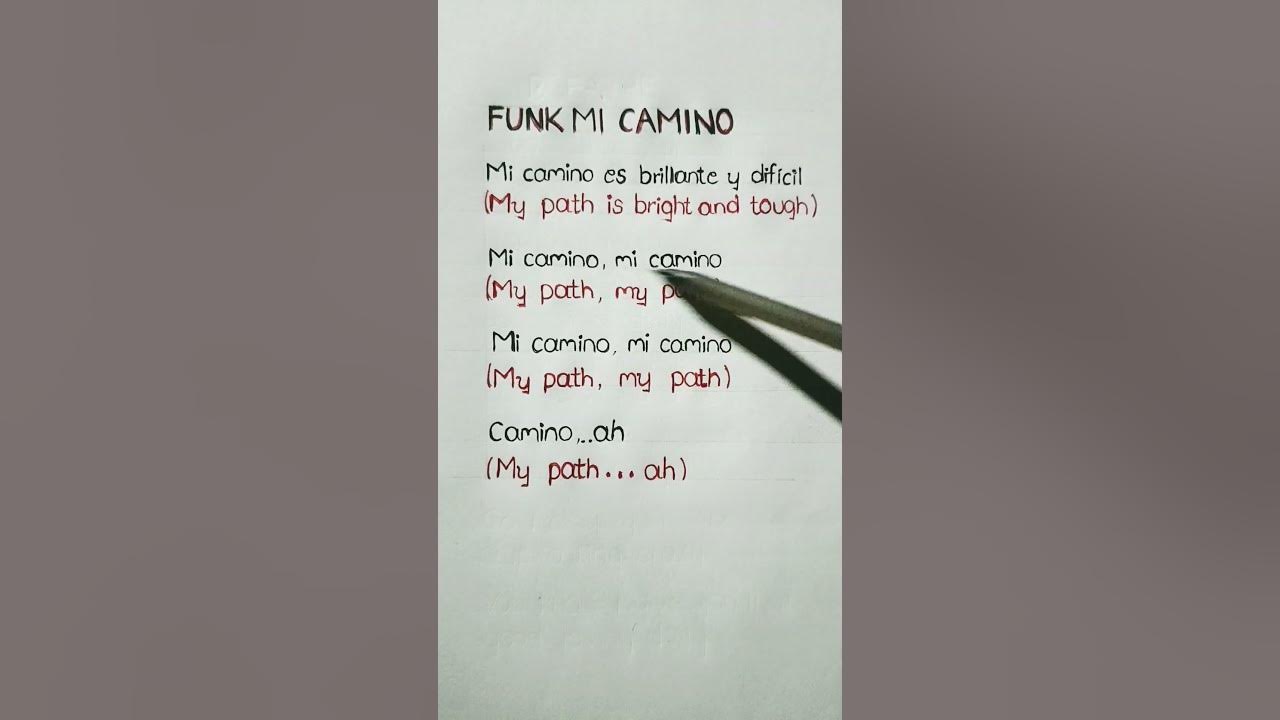 FUNK MI CAMINO
Mi camino es brillante y difícil
(My path is bright and tough)
Mi camino, mi camino
(My path, my
Mi camino, mi camino
(My path, my path)
Camino,..ah
(My path... ah)